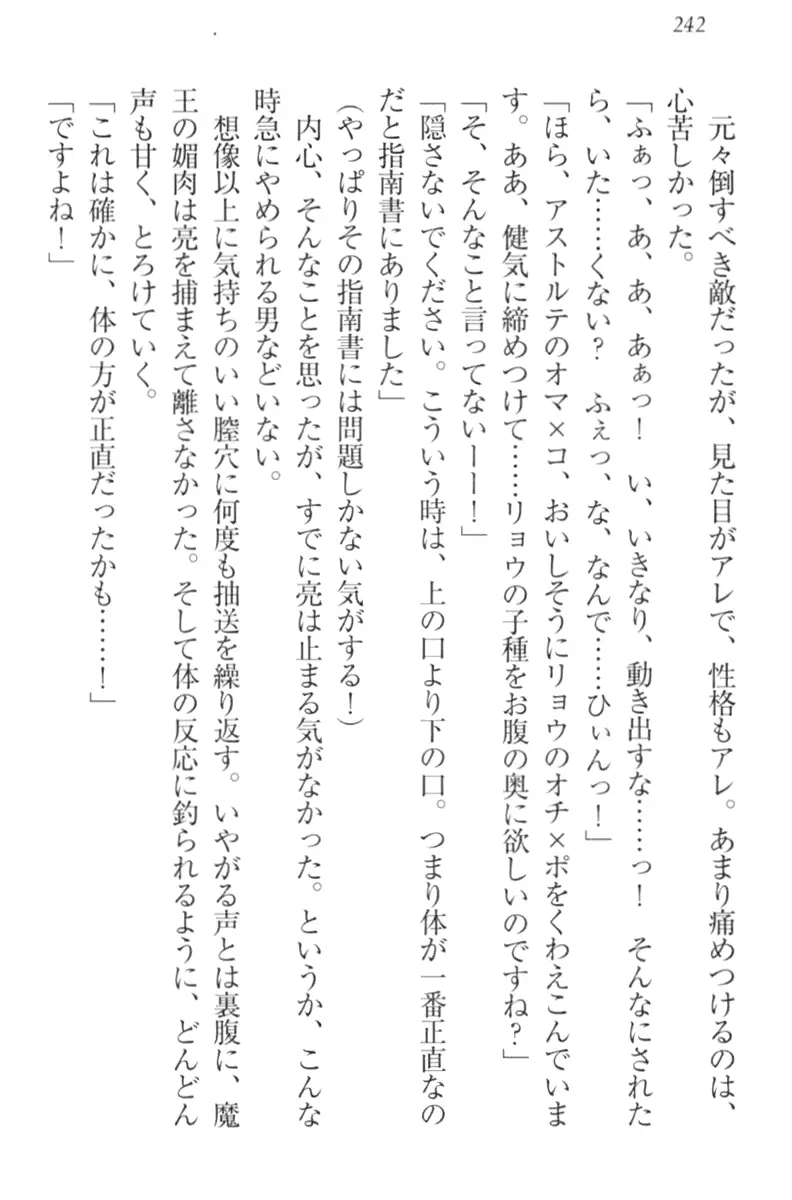 242
元々倒すべき敵だったが、見た目がアレで、性格もアレ。あまり痛めつけるのは、
心苦しかった。
「ふぁっ、あ、あ、あぁっ！　い、いきなり、動き出すな……っ！　そんなにされた
ら、いた……くない？　ふぇっ、な、なんで……ひぃんっ！」
「ほら、アストルテのオマ×コ、おいしそうにリョウのオチ×ポをくわえこんでいま
す。ああ、健気に締めつけて……リョウの子種をお腹の奥に欲しいのですね？」
「そ、そんなこと言ってない――！」
「隠さないでください。こういう時は、上の口より下の口。つまり体が一番正直なの
だと指南書にありました」
（やっぱりその指南書には問題しかない気がする！）
内心、そんなことを思ったが、すでに亮は止まる気がなかった。というか、こんな
時急にやめられる男などいない。
想像以上に気持ちのいい膣穴に何度も抽送を繰り返す。いやがる声とは裏腹に、魔
王の媚肉は亮を捕まえて離さなかった。そして体の反応に釣られるように、どんどん
声も甘く、とろけていく。
「これは確かに、体の方が正直だったかも……！」
「ですよね！」